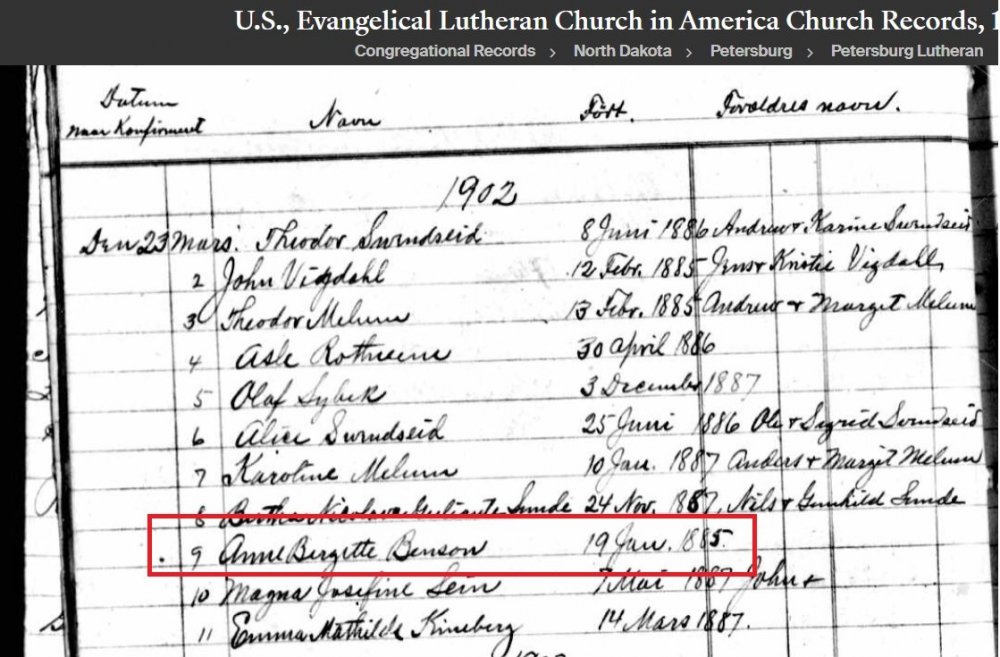 U.S., Evangelical Lutheran Church in America Church Records, 1
Congregational Records > North Dakota > Petersburg > Petersburg Lutheran
Datum Navn Født. Forældres navn.
naar Konfirmert
1902
Den 23 Mars. Theodor Svendseid 8 Juni 1886 Andrew + Karine Svendseid
2 John Vigdahl 12 Febr. 1885 Jens + Kristie Vigdall
3 Theodor Melum 13 Febr. 1885 Andrew + Margit Melum
4 Asle 30 April 1886
5 Olaf 3 December 1887
6 Alice Svendseid 25 Juni 1886 Ole + Sigrid Svendseid
7 Karoline Melum 10 Jan. 1887 Anders + Margit Melum
8 Sunde 24 Nov. 1887. Nils + Gunhild Sunde
9 Anne Birgette Benson 19 Jan. 1885.
10 Magna Josefine 7 Mai 1887 John +
11 Emma Mathilde 14 Mars 1887.